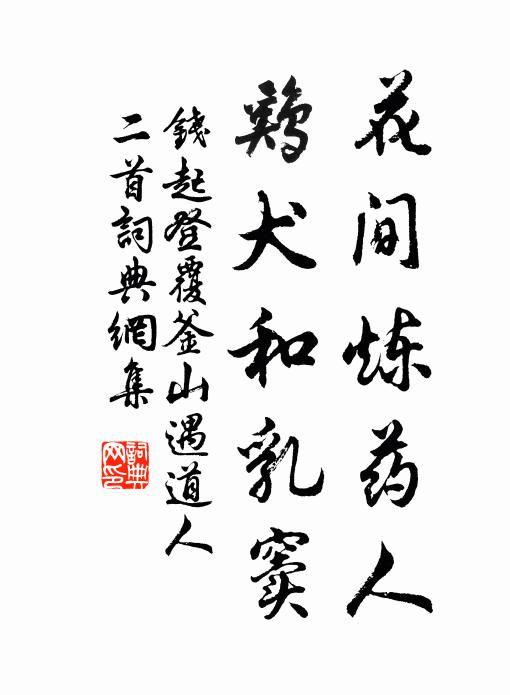 花间炼药人
鷄犬和乳窦
錢起登覆釜山遇道人
二首詞典網集
詞典
网印